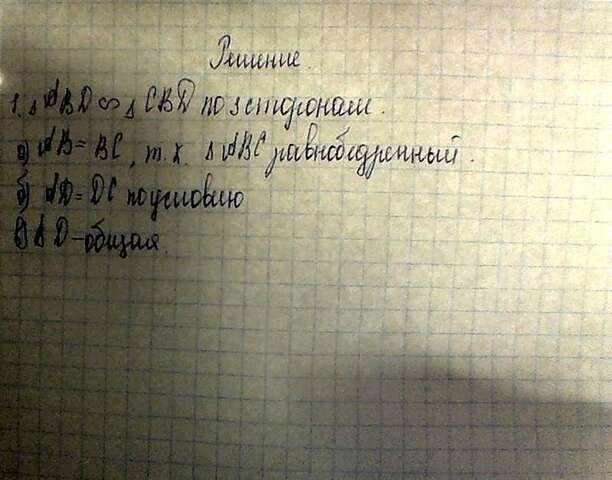 Решение.
1. △ ABD ∞ △ CBD по 3 сторонам.
а) AB = BC, т.к. △ ABC равнобедренный.
б) AD = DC по условию
в) BD - общая.